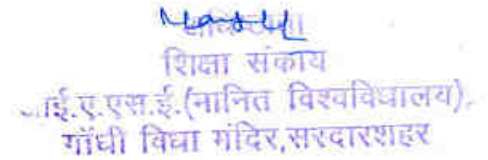 शिक्षा संकाय
आई.ए.एस.ई.(मानित विश्वविद्यालय),
गाँधी विद्या मंदिर,सरदारशहर